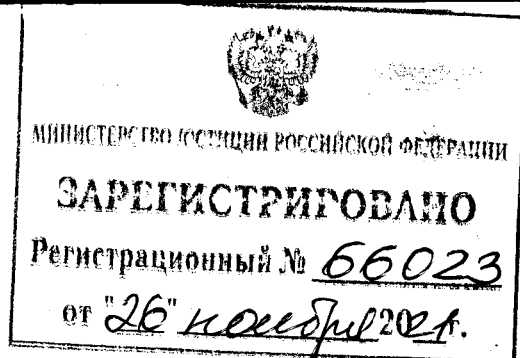 МИНИСТЕРСТВО ЮСТИЦИИ РОССИЙСКОЙ ФЕДЕРАЦИИ
ЗАРЕГИСТРИРОВАНО
Регистрационный № 66023
от "26" ноября 2021г.